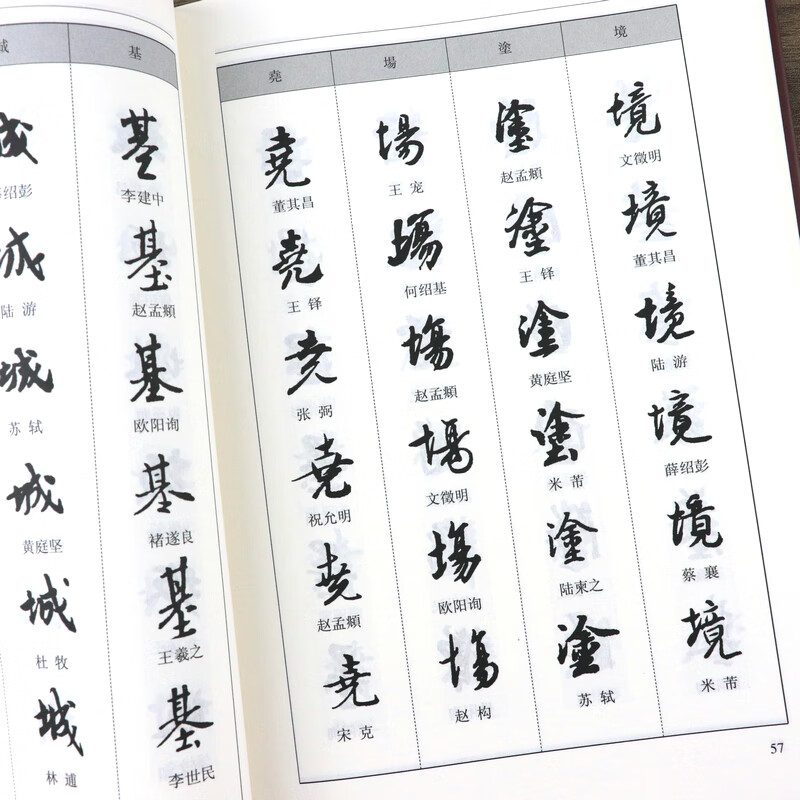 城 基
城 基
绍彭 李建中
城 基
陆游 赵孟頫
城 基
苏轼 欧阳询
城 基
黄庭坚 褚遂良
城 基
杜牧 王羲之
城 基
林逋 李世民
堯 場 塗 境
堯 場 塗 境
董其昌 王宠 赵孟頫 文徵明
堯 場 塗 境
王铎 何绍基 王铎 董其昌
堯 場 塗 境
张弼 赵孟頫 黄庭坚 陆游
堯 場 塗 境
祝允明 文徵明 米芾 薛绍彭
堯 場 塗 境
赵孟頫 欧阳询 陆柬之 蔡襄
堯 場 塗 境
宋克 赵构 苏轼 米芾
57